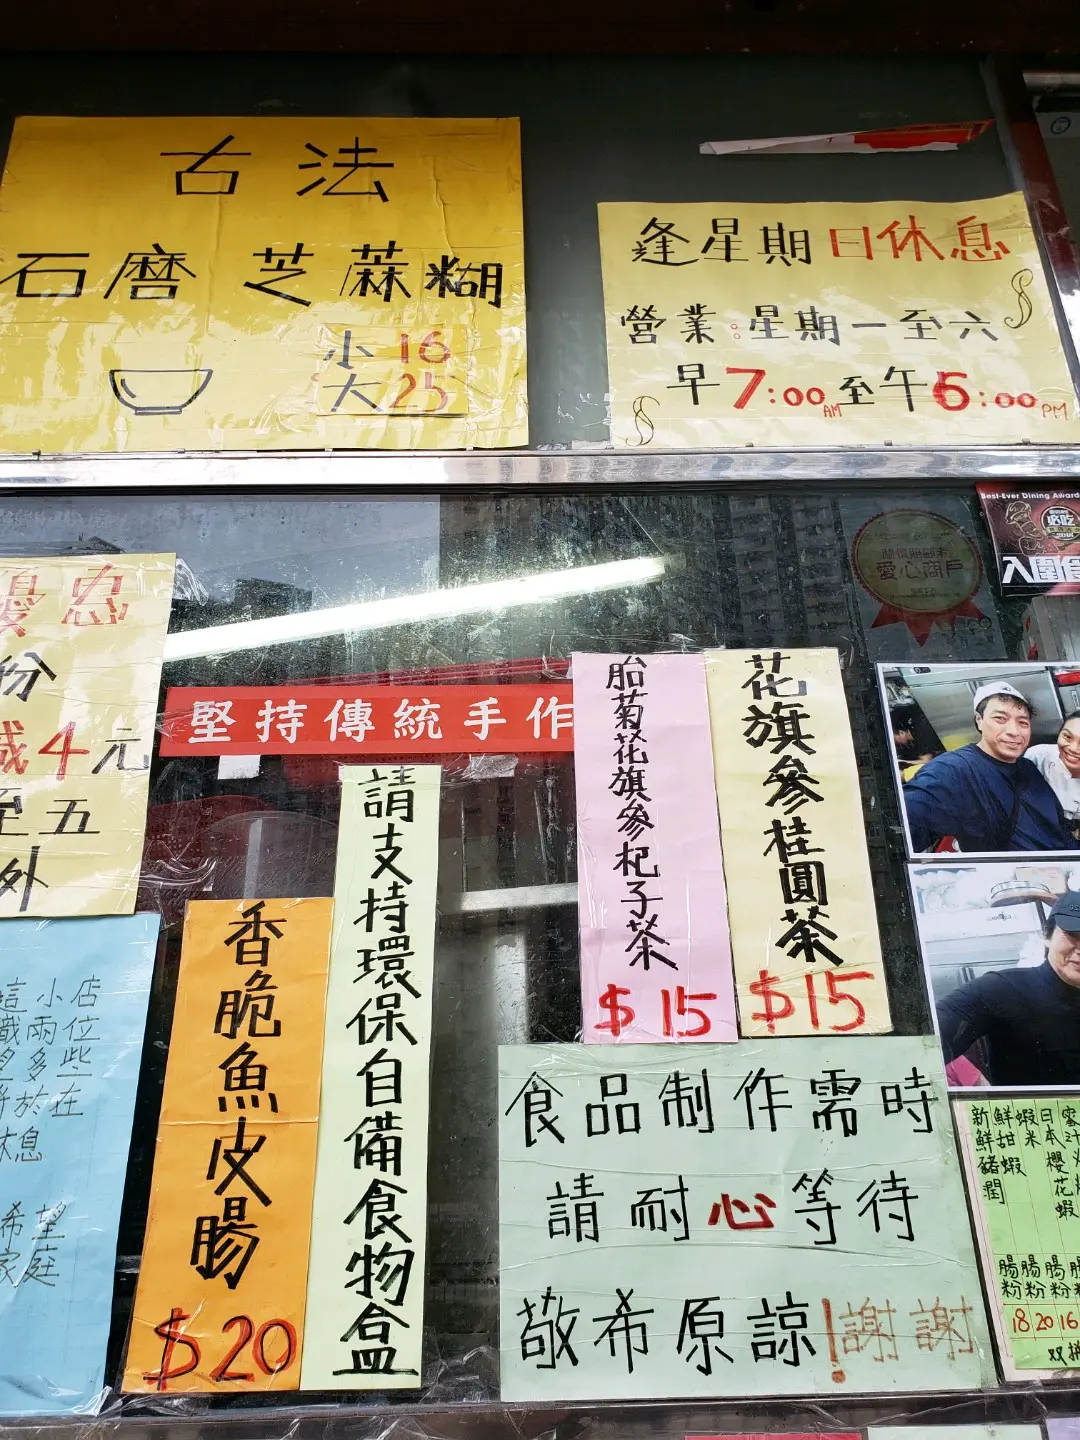 古法
石磨 芝蔴糊
小 16
大 25
逢星期日休息
營業:星期一至六
早7:00AM至午6:00PM
Best-Ever Dining Award
必吃
入圍食
愛心商戶
優惠
份
減4元
至五
外
堅持傳統手作
胎菊花旗參杞子茶
$15
花旗參桂圓茶
$15
請支持環保自備食物盒
香脆魚皮腸
$20
這小店
職兩位
多些
於在
休息
希望
家庭
食品制作需時
請耐心等待
敬希原諒!謝謝
新鮮豬潤腸粉 18
鮮甜蝦腸粉 20
蝦米腸粉 16
日本櫻花蝦